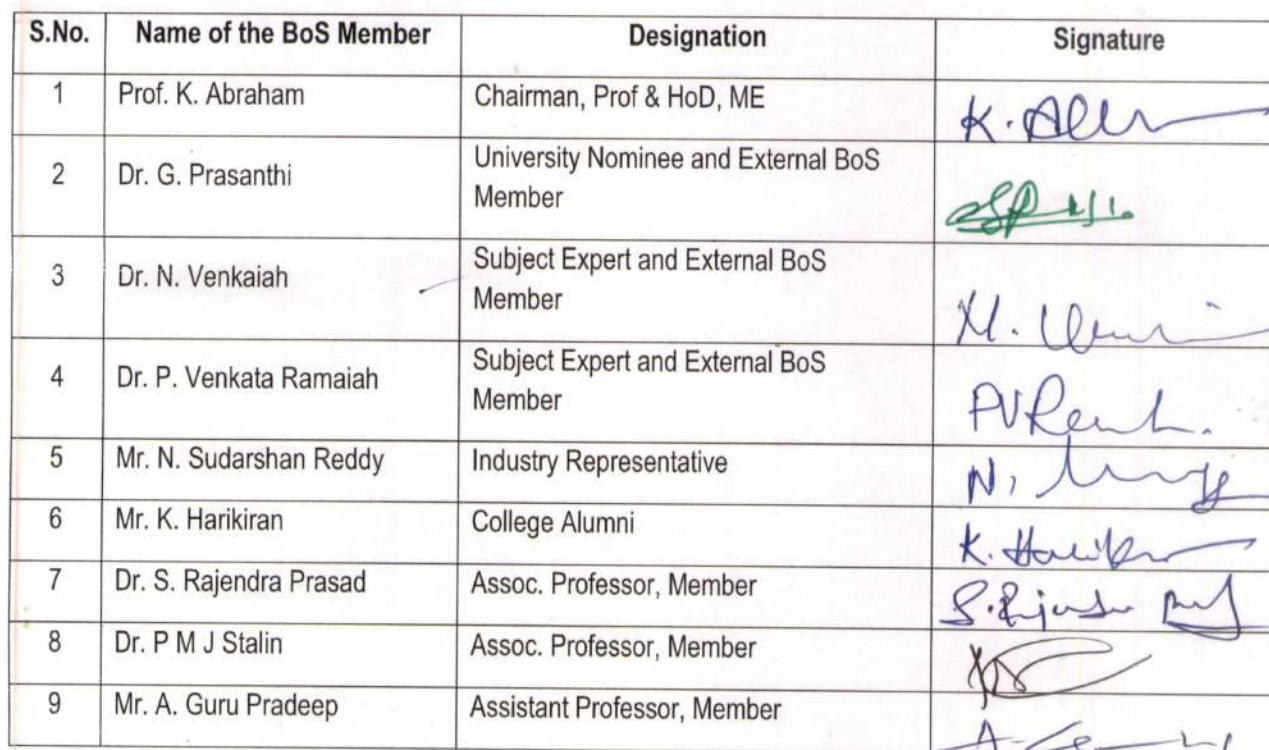 S.No. Name of the BoS Member Designation Signature
1 Prof. K. Abraham Chairman, Prof & HoD, ME K.
2 Dr. G. Prasanthi University Nominee and External BoS
Member
3 Dr. N. Venkaiah Subject Expert and External BoS
Member
4 Dr. P. Venkata Ramaiah Subject Expert and External BoS
Member
5 Mr. N. Sudarshan Reddy Industry Representative N.
6 Mr. K. Harikiran College Alumni K.
7 Dr. S. Rajendra Prasad Assoc. Professor, Member
8 Dr. P M J Stalin Assoc. Professor, Member
9 Mr. A. Guru Pradeep Assistant Professor, Member